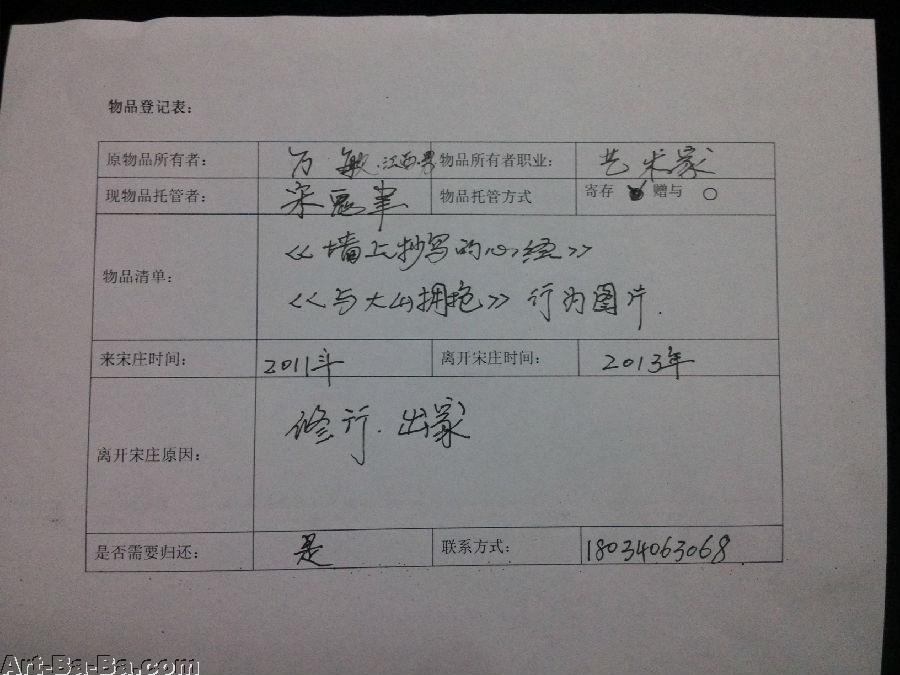 物品登记表：
原物品所有者： 万 敏.江西.男 物品所有者职业： 艺术家
现物品托管者： 宋 物品托管方式 寄存 赠与 ○
物品清单：
《墙上抄写的心经》
《与大山拥抱》行为图片.
来宋庄时间： 2011年 离开宋庄时间： 2013年
离开宋庄原因： 修行.出家
是否需要归还： 是 联系方式： 18034063068
Art-Ba-Ba.com